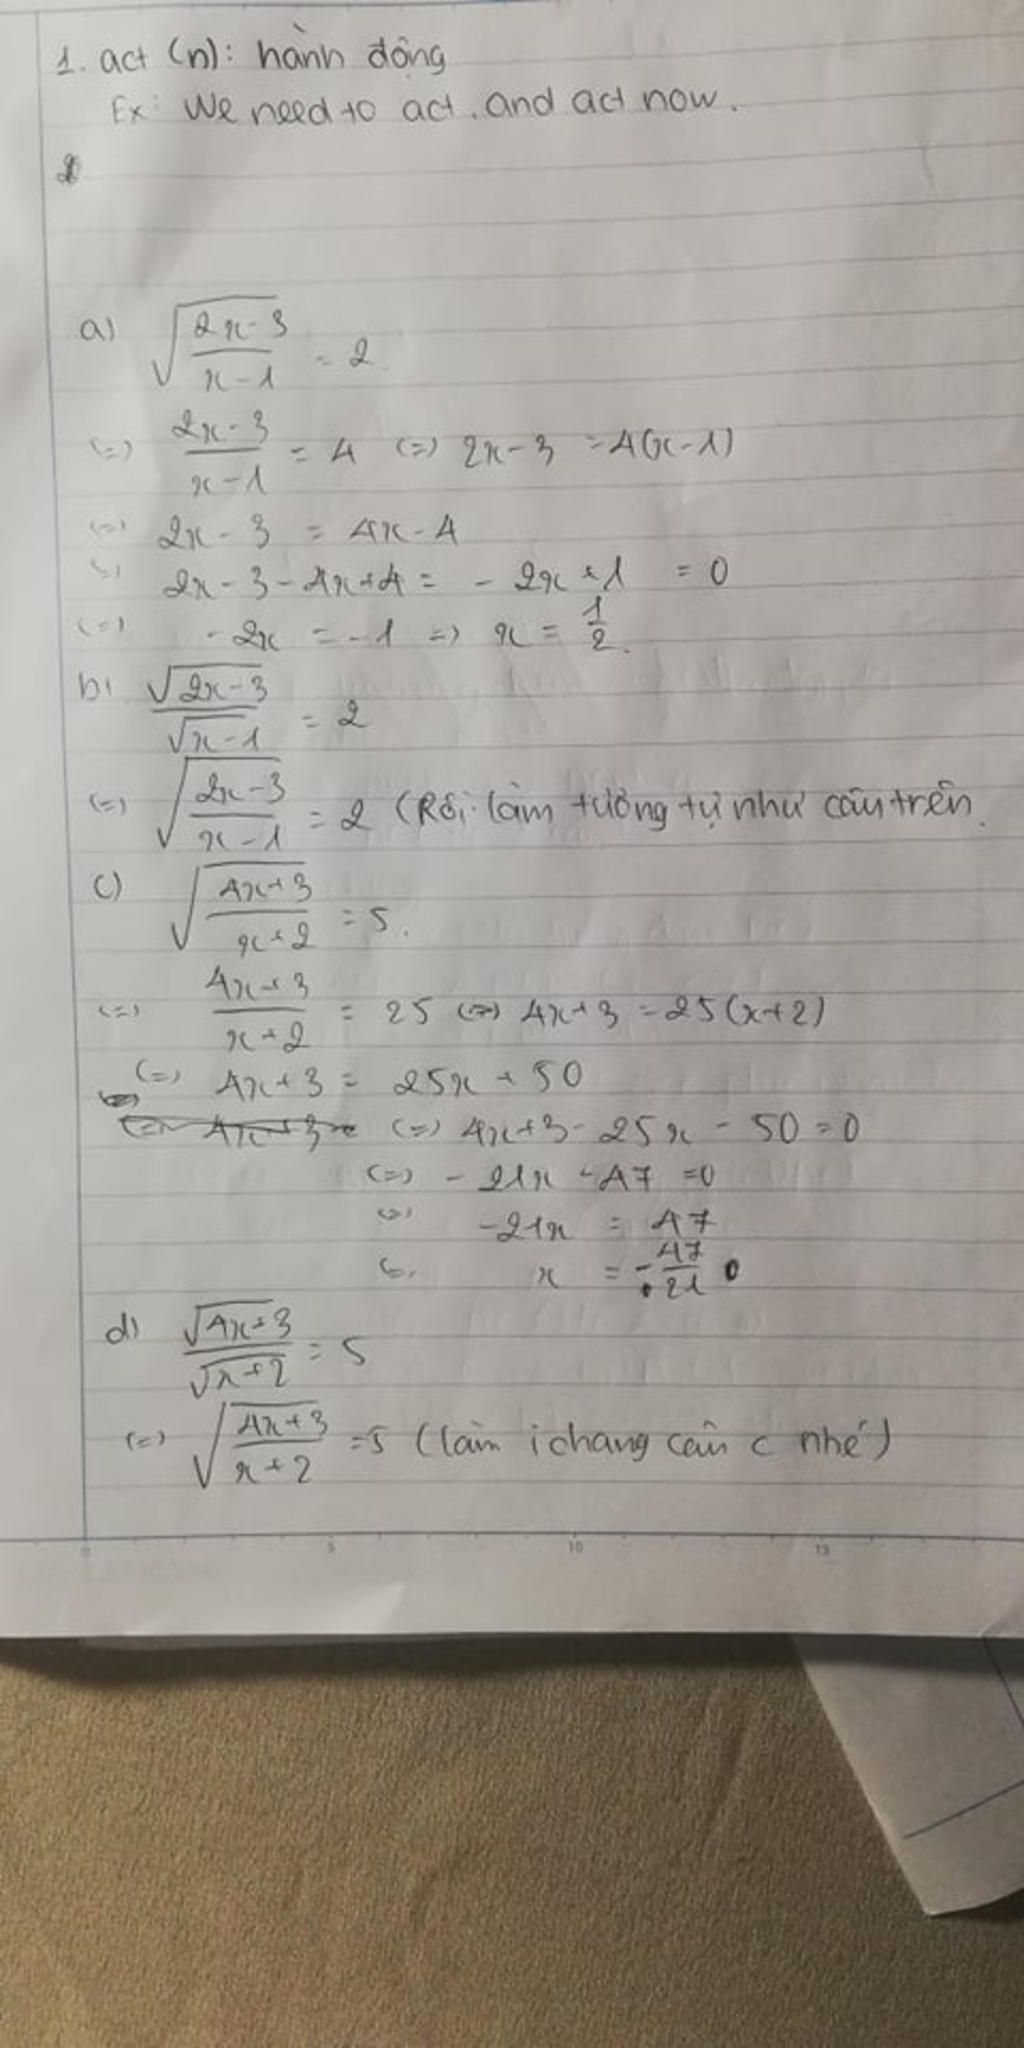 1. act (n): hành động
Ex: We need to act, and act now.
a) √((2x-3)/(x-1)) = 2
(=) (2x-3)/(x-1) = 4 (=) 2x-3 = 4(x-1)
(=) 2x-3 = 4x-4
(=) 2x-3-4x+4 = -2x+1 = 0
(=) -2x = -1 => x = 1/2.
b) √(2x-3)/√(x-1) = 2
(=) √((2x-3)/(x-1)) = 2 (Rồi làm tương tự như câu trên.
c) √((4x+3)/(x+2)) = 5.
(=) (4x+3)/(x+2) = 25 (=) 4x+3 = 25(x+2)
(=) 4x+3 = 25x+50
(=) 4x+3-25x-50=0
(=) -21x-47=0
(=) -21x = 47
x = -47/21
d) √(4x+3)/√(x+2) = 5
(=) √((4x+3)/(x+2)) =5 (làm i chang câu c nhé)
0 5 10 15